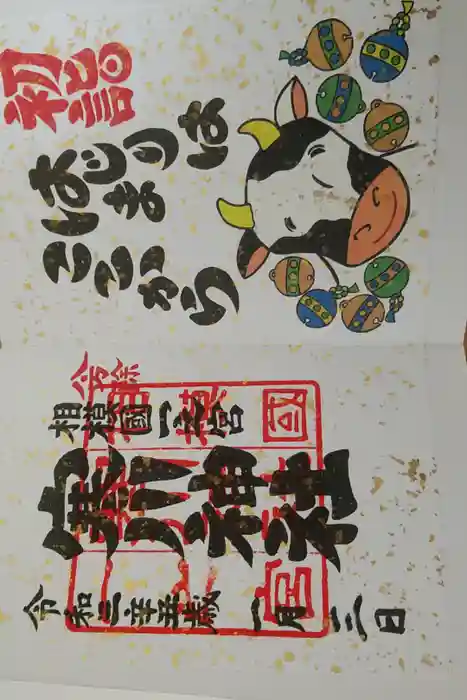 初詣
はじまりは
ここから
奉拝
相模國一之宮
寒川神社
令和三年辛丑歳 一月二日